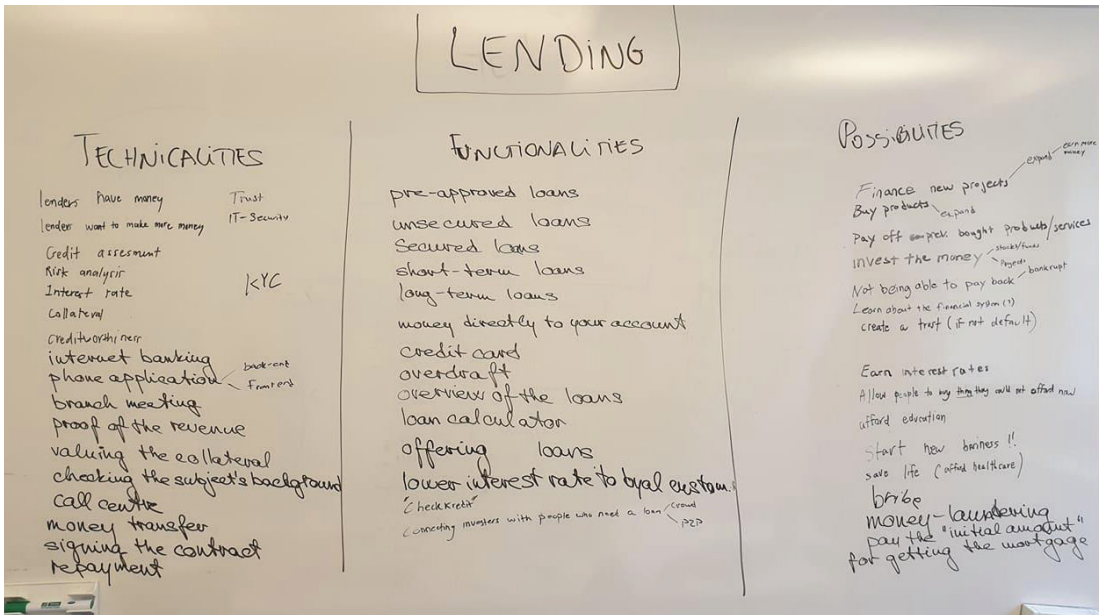 LENDING
TECHNICALITIES
lenders have money
Trust
lenders want to make more money
IT-Security
Credit assesment
Risk analysis
Interest rate
KYC
Collateral
creditworthiness
internet banking
phone application
back-end
Frontend
branch meeting
proof of the revenue
valuing the collateral
checking the subject's background
call centre
money transfer
signing the contract
repayment
FUNCTIONALITIES
pre-approved loans
unsecured loans
Secured loans
short-term loans
long-term loans
money directly to your account
credit card
overdraft
overview of the loans
loan calculator
offering loans
lower interest rate to loyal custom.
"Check Kredit"
Connecting investors with people who need a loan
crowd
P2P
POSSIBILITIES
Finance new projects
expand
earn more
money
Buy products
expand
Pay off prev. bought products/services
invest the money
stocks/funds
Projects
Not being able to pay back
bankrupt
Learn about the financial system (?)
create a trust (if not default)
Earn interest rates
Allow people to buy thing they could not afford now
afford education
Start new business !!
save life (afford healthcare)
bribe
money-laundering
pay the "initial amount"
for getting the mortgage